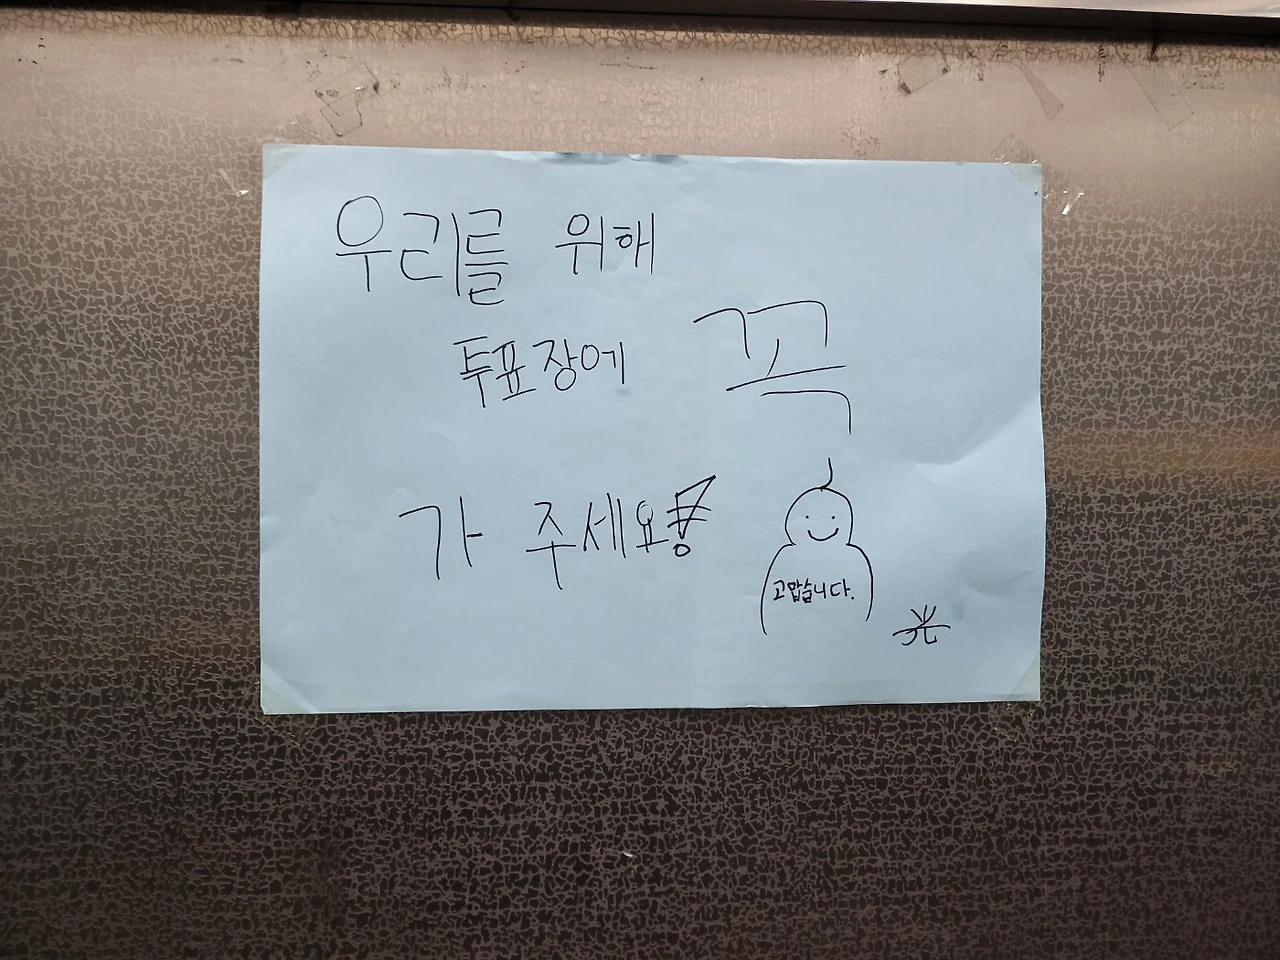 우리를 위해
투표장에 꼭
가 주세요!
고맙습니다.
光